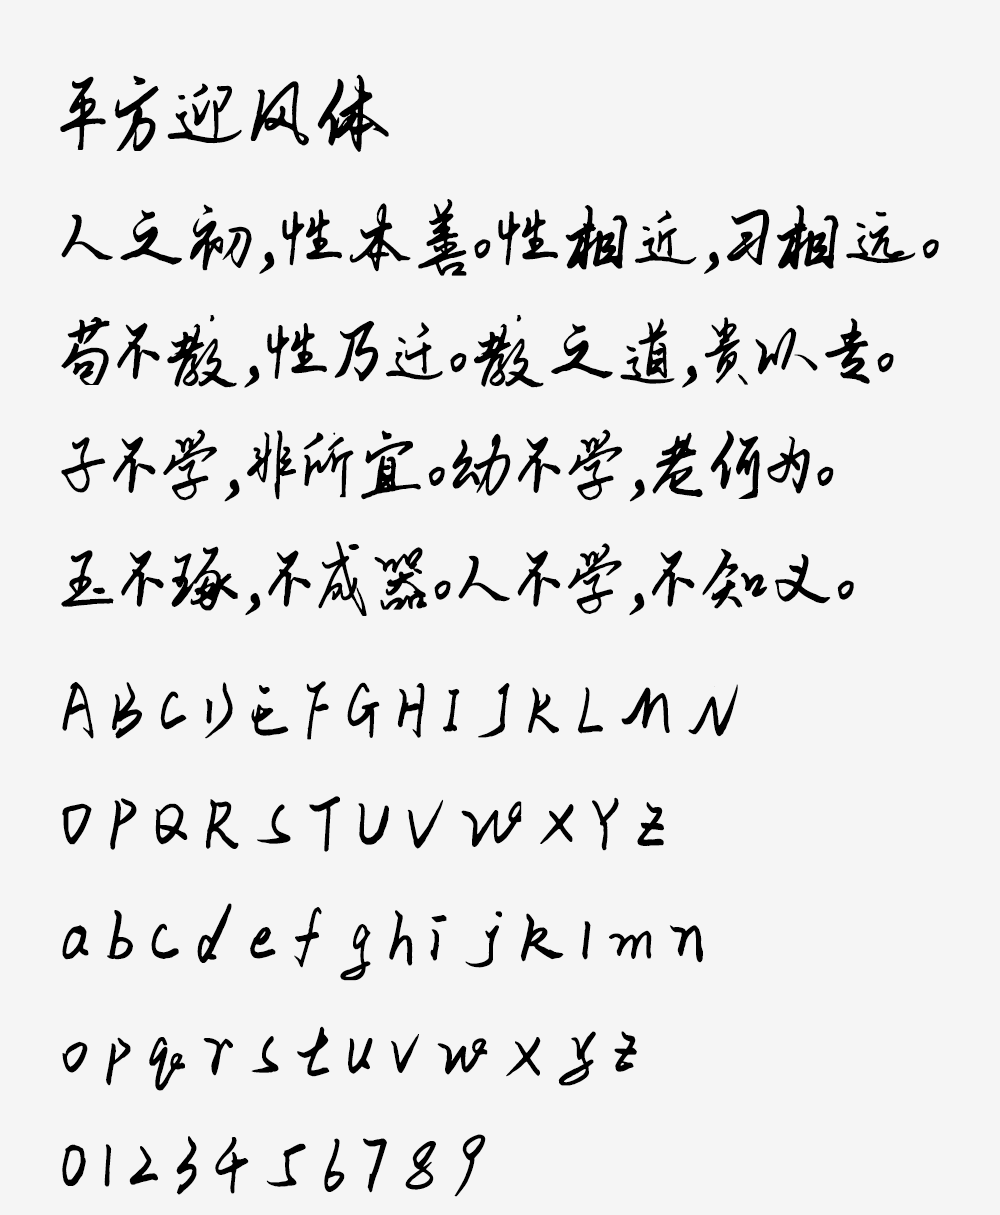 平方迎风体
人之初,性本善。性相近,习相远。
苟不教,性乃迁。教之道,贵以专。
子不学,非所宜。幼不学,老何为。
玉不琢,不成器。人不学,不知义。
ABCDEFGHIJKLMN
OPQRSTUVWXYZ
abcdefghijklmn
opqrstuvwxyz
0123456789